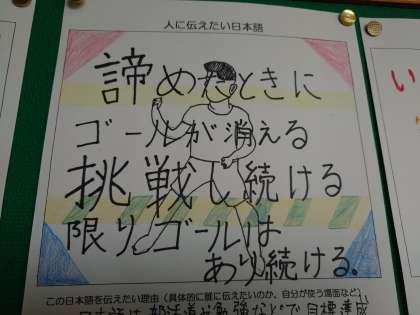 人に伝えたい日本語
い
諦めたときに
ゴールが消える
挑戦し続ける
限りゴールは
あり続ける.
この日本語を伝えたい理由(具体的に誰に伝えたいのか、自分が使う場面など)